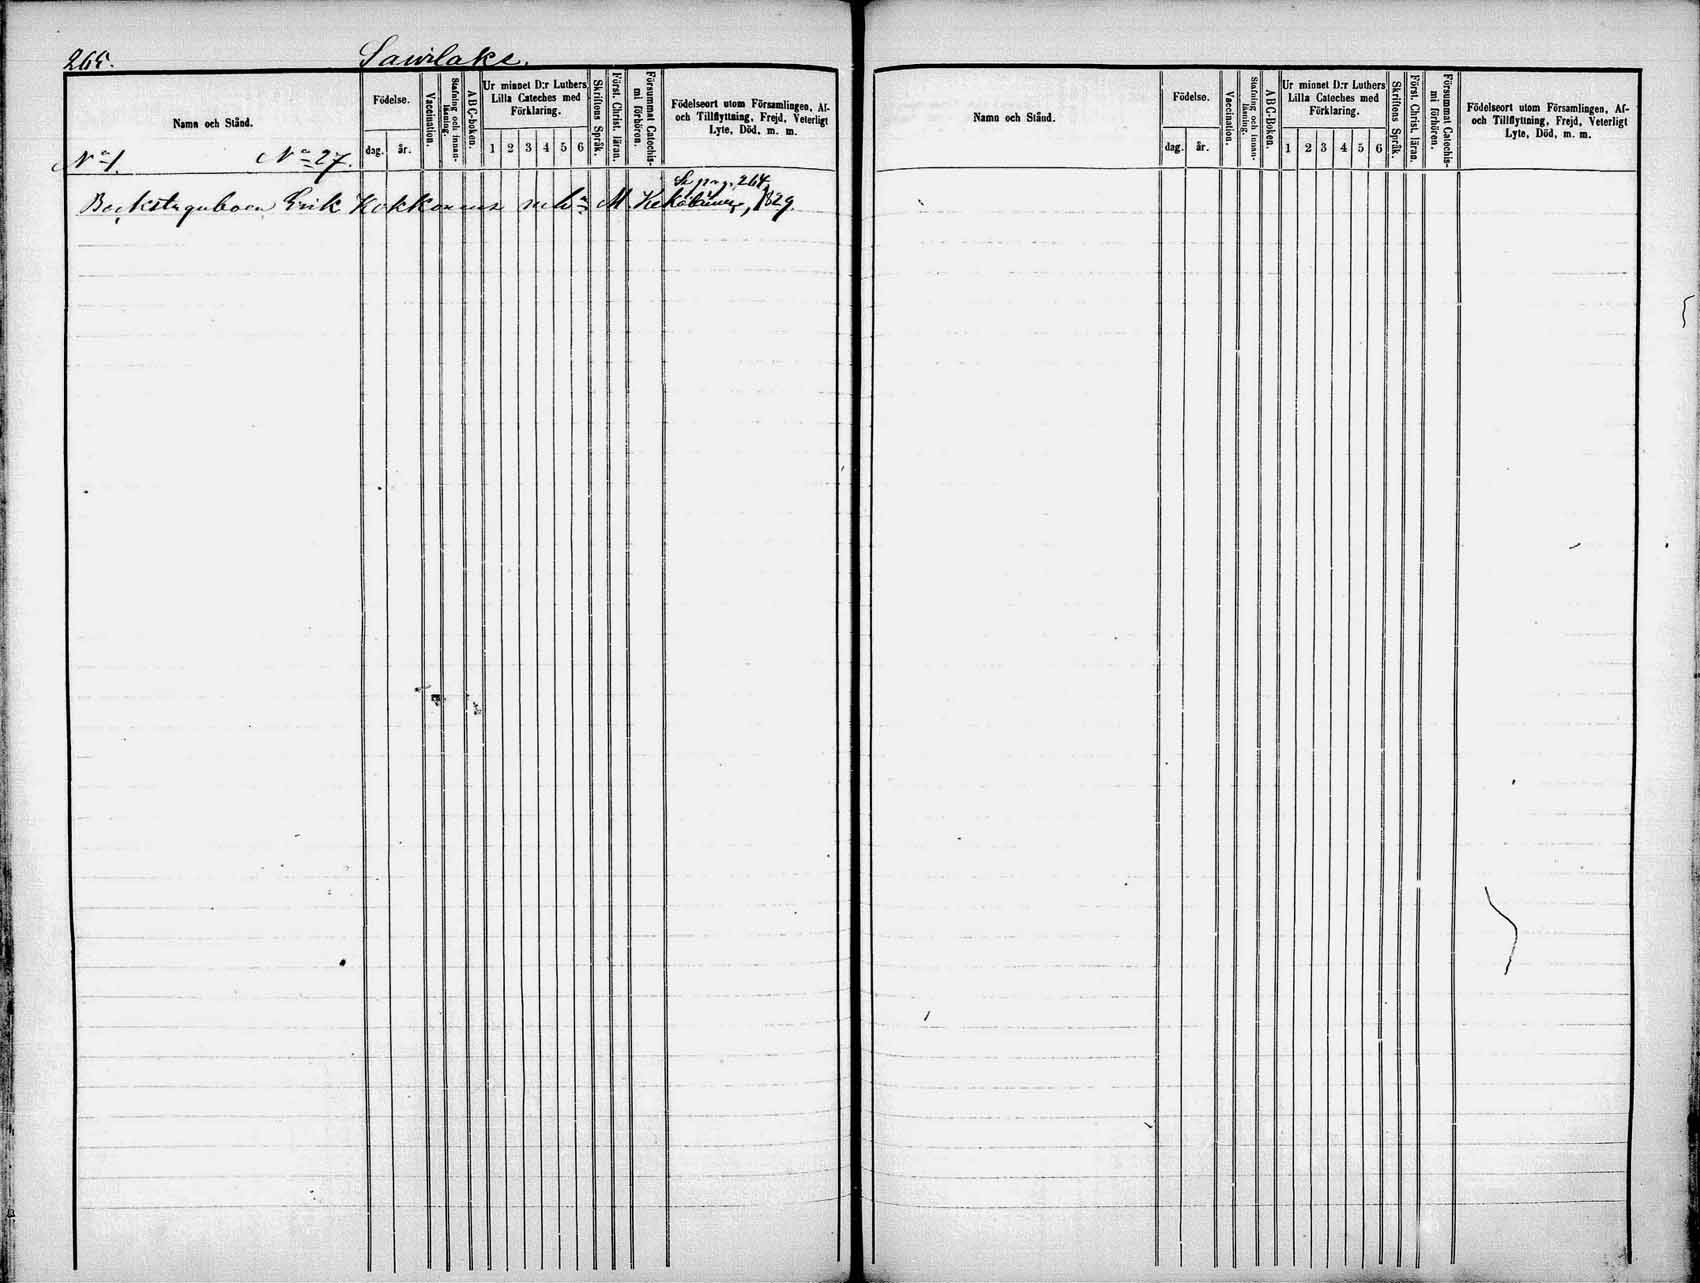 265. Sawilaks.
Namn och Stånd.
Födelse.
dag. år.
Vaccination.
Stafning och innan-
läsning.
ABC-boken.
Ur minnet D:r Luthers
Lilla Cateches med
Förklaring.
1 2 3 4 5 6
Skriftens Språk.
Först. Christ. läran.
Försummat Catechis-
mi förhören.
Födelseort utom Församlingen, Af-
och Tillflyttning, Frejd, Veterligt
Lyte, Död, m. m.
No 1. No 27.
Se pag. 264
Backstuguboen Erik Kokkonens M. 1829.
Namn och Stånd.
Födelse.
dag. år.
Vaccination.
Stafning och innan-
läsning.
ABC-Boken.
Ur minnet D:r Luthers
Lilla Cateches med
Förklaring.
1 2 3 4 5 6
Skriftens Språk.
Först. Christ. läran.
Försummat Catechis-
mi förhören.
Födelseort utom Församlingen, Af-
och Tillflyttning, Frejd, Veterligt
Lyte, Död, m. m.